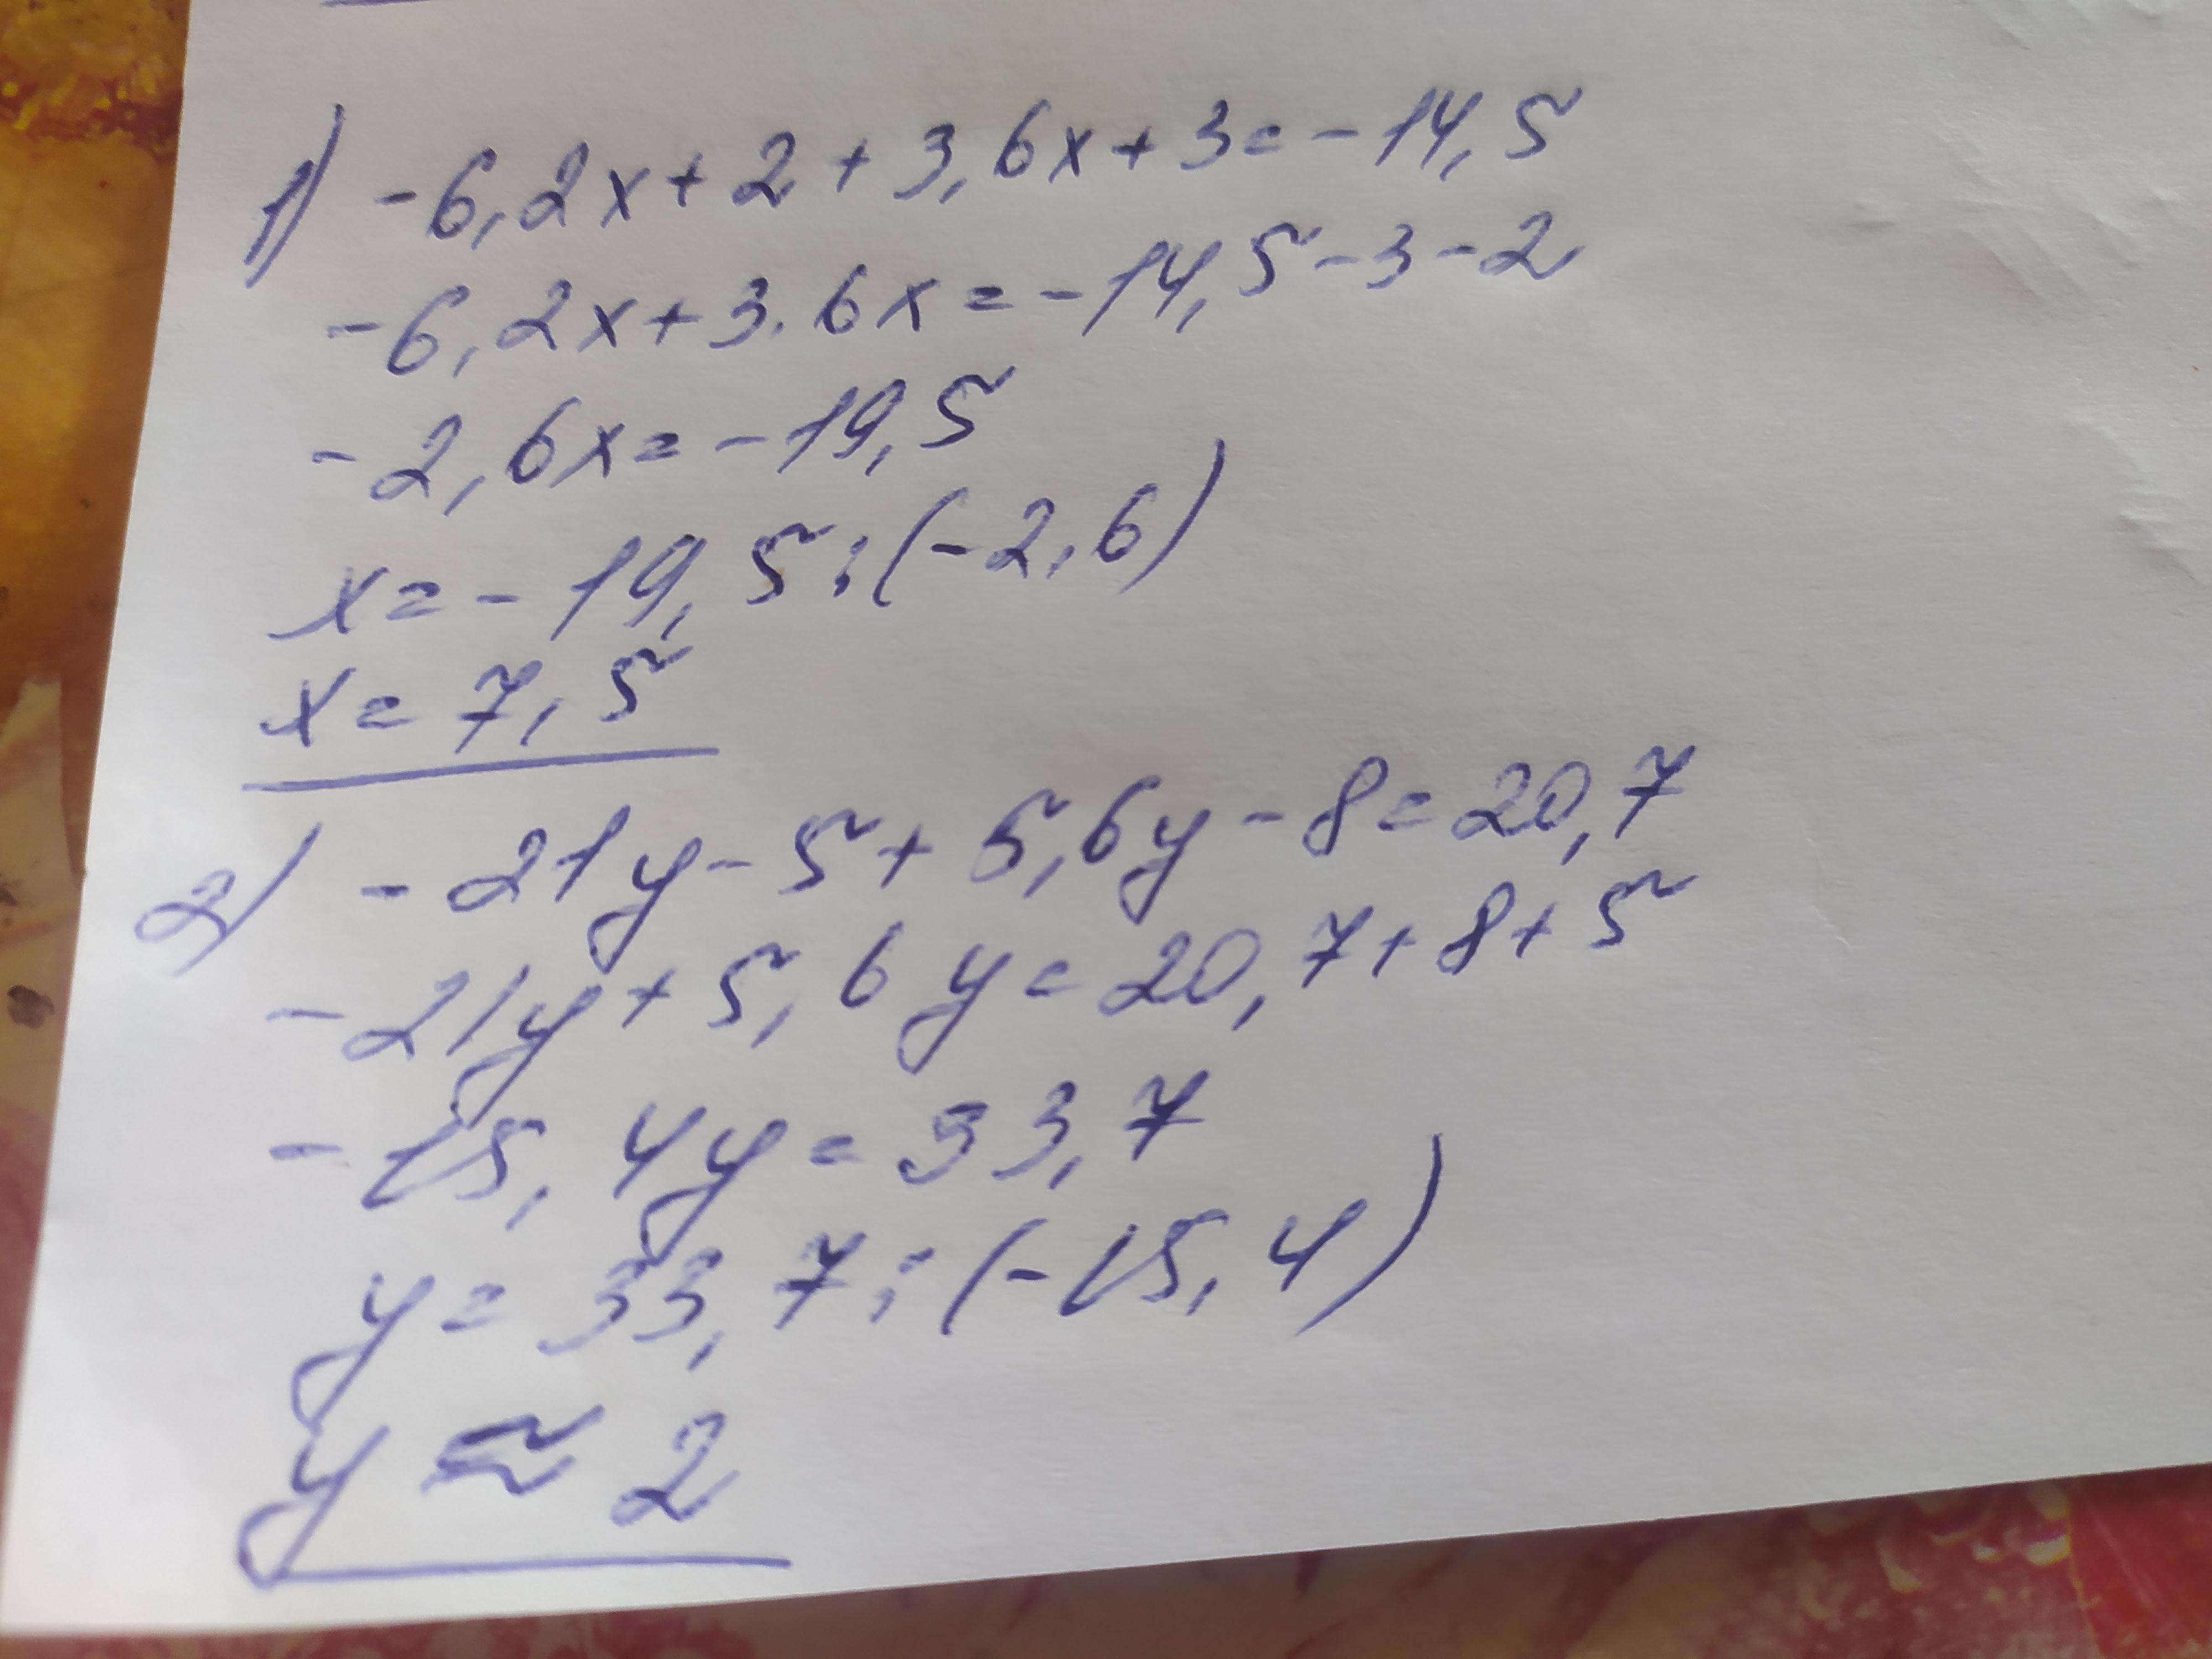 1) -6,2x+2+3,6x+3=-14,5
-6,2x+3.6x=-14,5-3-2
-2,6x=-19,5
x=-19,5:(-2,6)
x=7,5
2) -21y-5+5,6y-8=20,7
-21y+5,6y=20,7+8+5
-15,4y=33,7
y=33,7:(-15,4)
y≈2